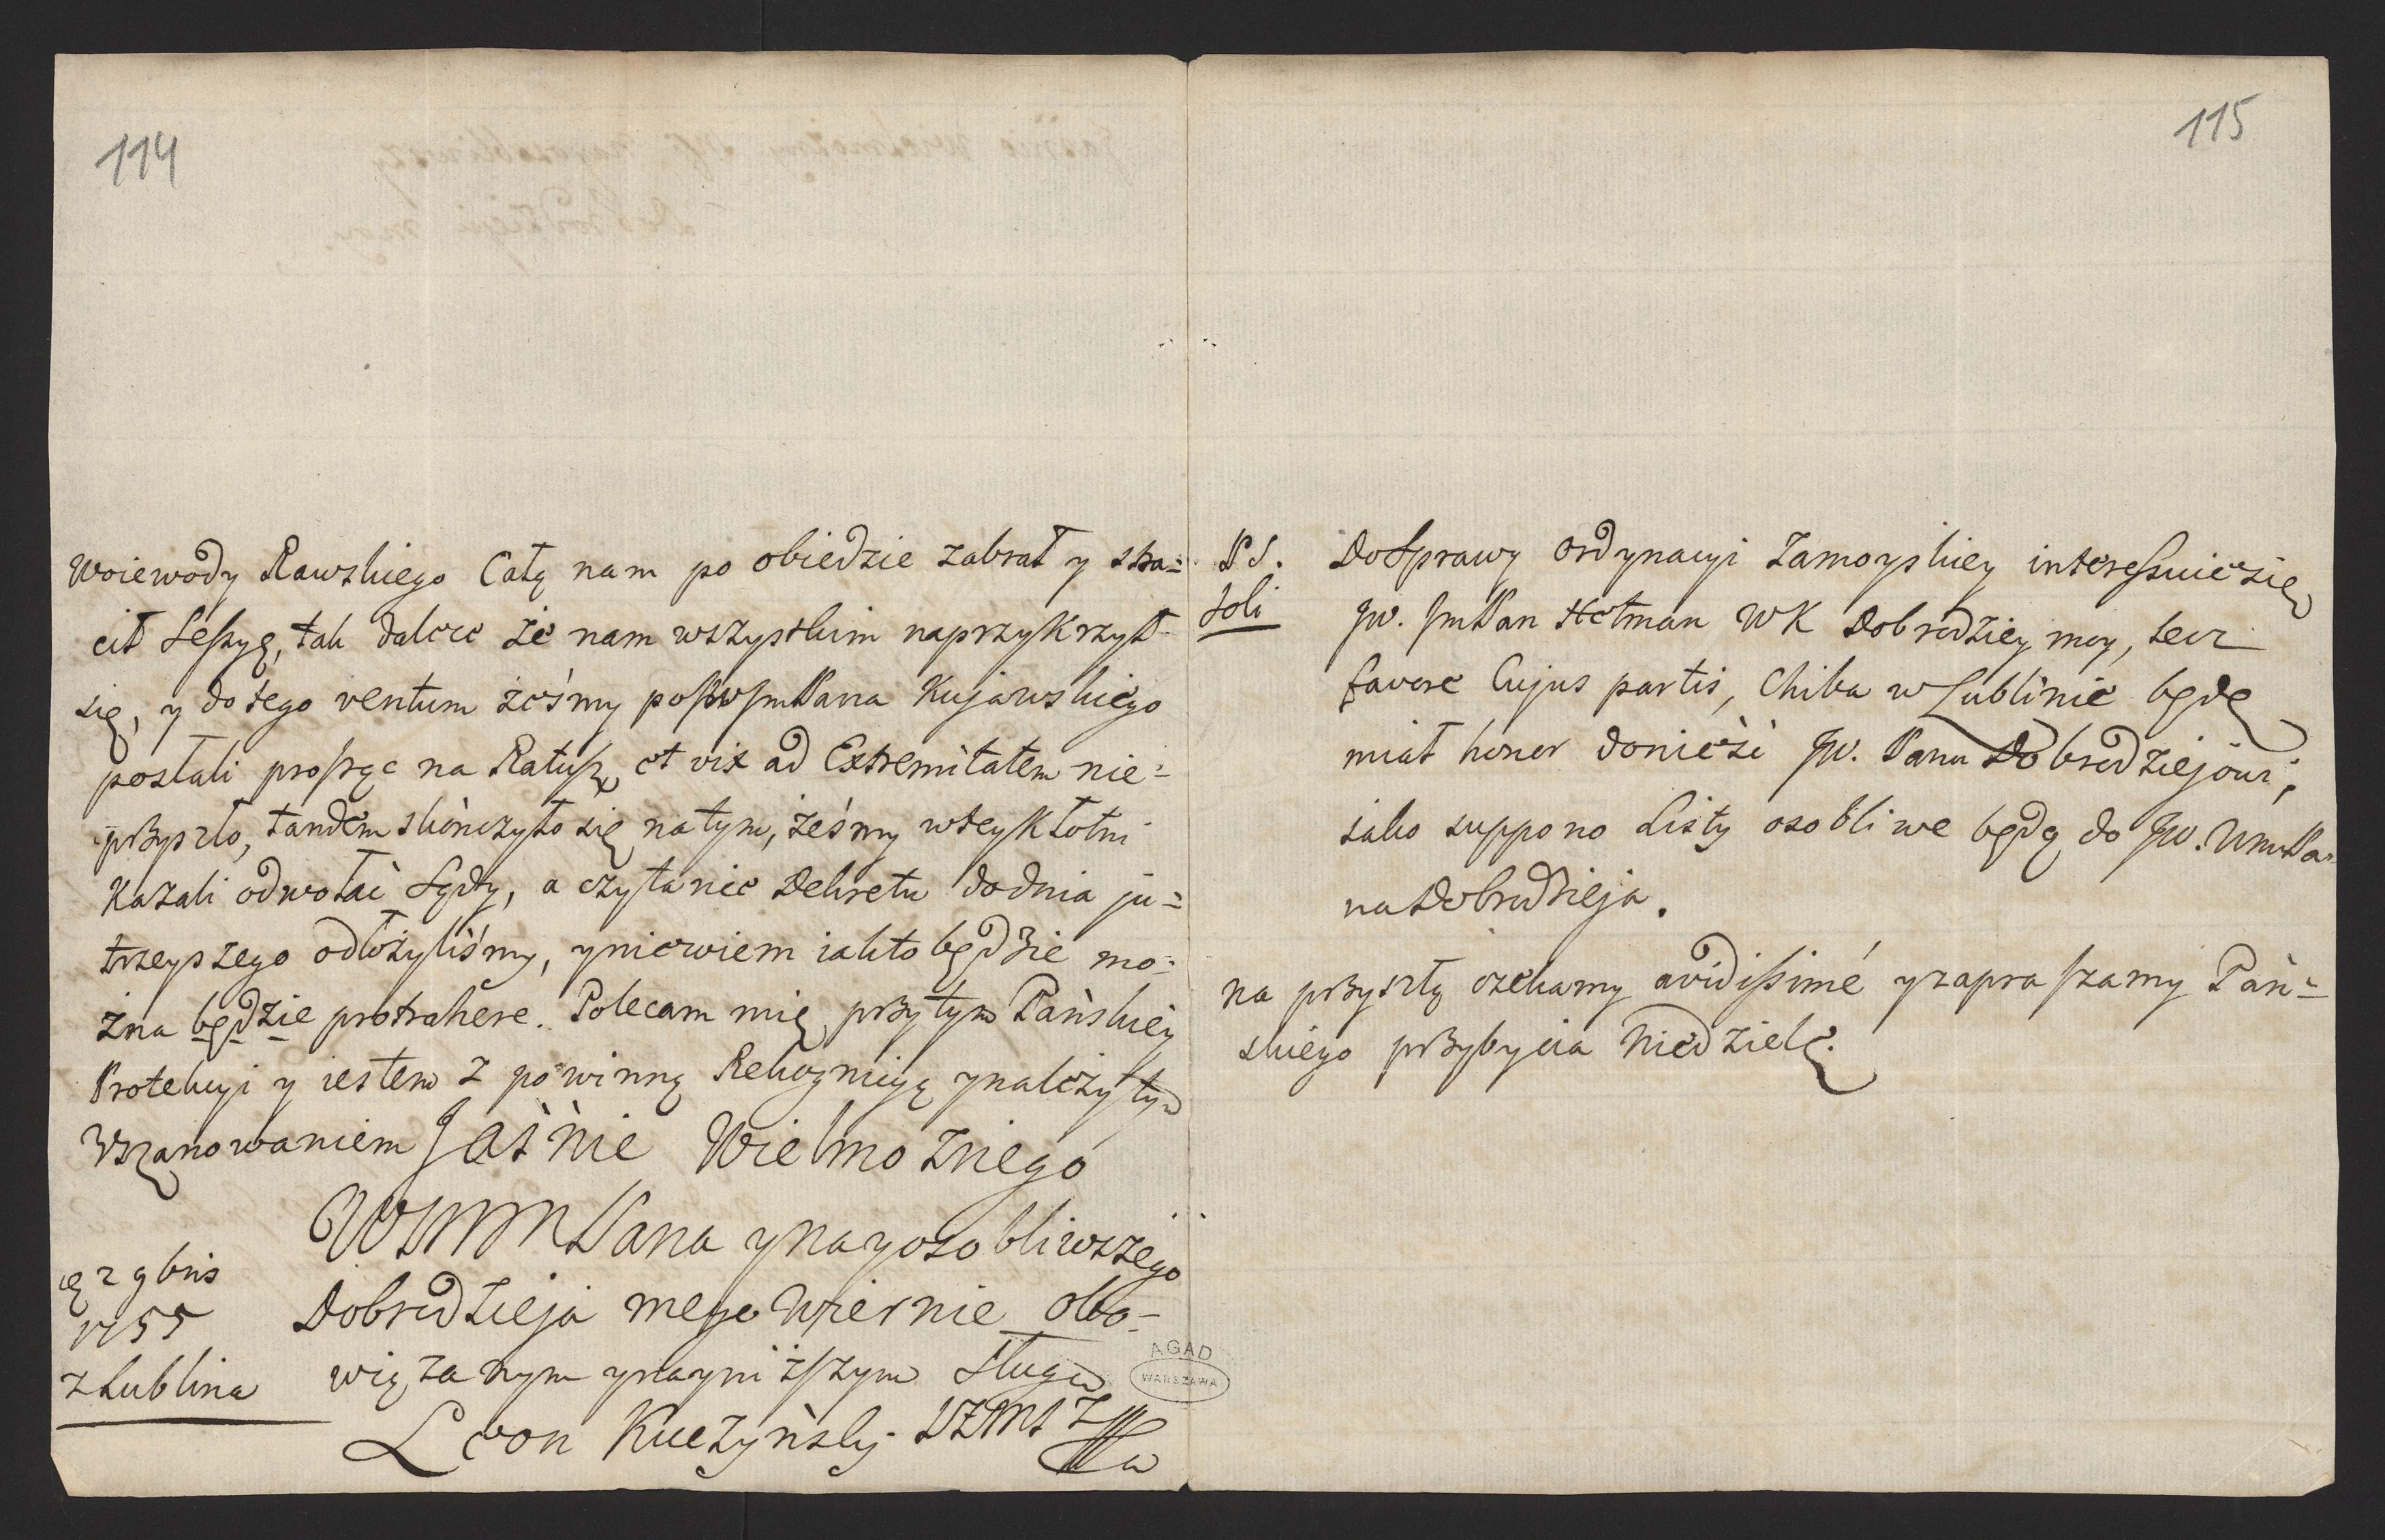 114
Woiewody Rawskiego Całą nam po obiedzie zabrał y stra=
cił Seszyę, tak dalece że nam wszystkim naprzykrzył
się, y do tego ventum żeśmy po Pana Kujawskiego
posłali prosząc na Ratusz, et vix ad Extremitatem nie=
przyszło, tandem skończyło się na tym, żeśmy w tey Kłotni
Kazali odwołać Sądy, a czytanie Dekretu do dnia ju=
trzeyszego odłożyliśmy, y niewiem iak to będzie mo=
żna będzie protrahere. Polecam mię przytym Pańskiey
Protekcyi y iestem z powinną Rekognicyą y należytym
Uszanowaniem Jaśnie Wielmożnego
WMM Pana y nayosobliwszego
Dobrodzieja mego Wiernie obo=
wiązanym y nayniższym Sługą
Leon Kuczyński
2 9bris
1755
z Lublina
AGAD
WARSZAWA
115
PS.
Soli
Do Sprawy Ordynacyi Zamoyskiey interessuie się
JW. Jm Pan Hetman WK Dobrodziey moy, lecz
favore Cujus partis, Chiba w Lublinie będę
miał honor donieść JW. Panu Dobrodziejowi;
iako suppono Listy osobliwe będą do JW. Wm Pa=
na Dobrodzieja.
na przyszłą czekamy avidissimé y zapraszamy Pań=
skiego przybycia Niedzielę.